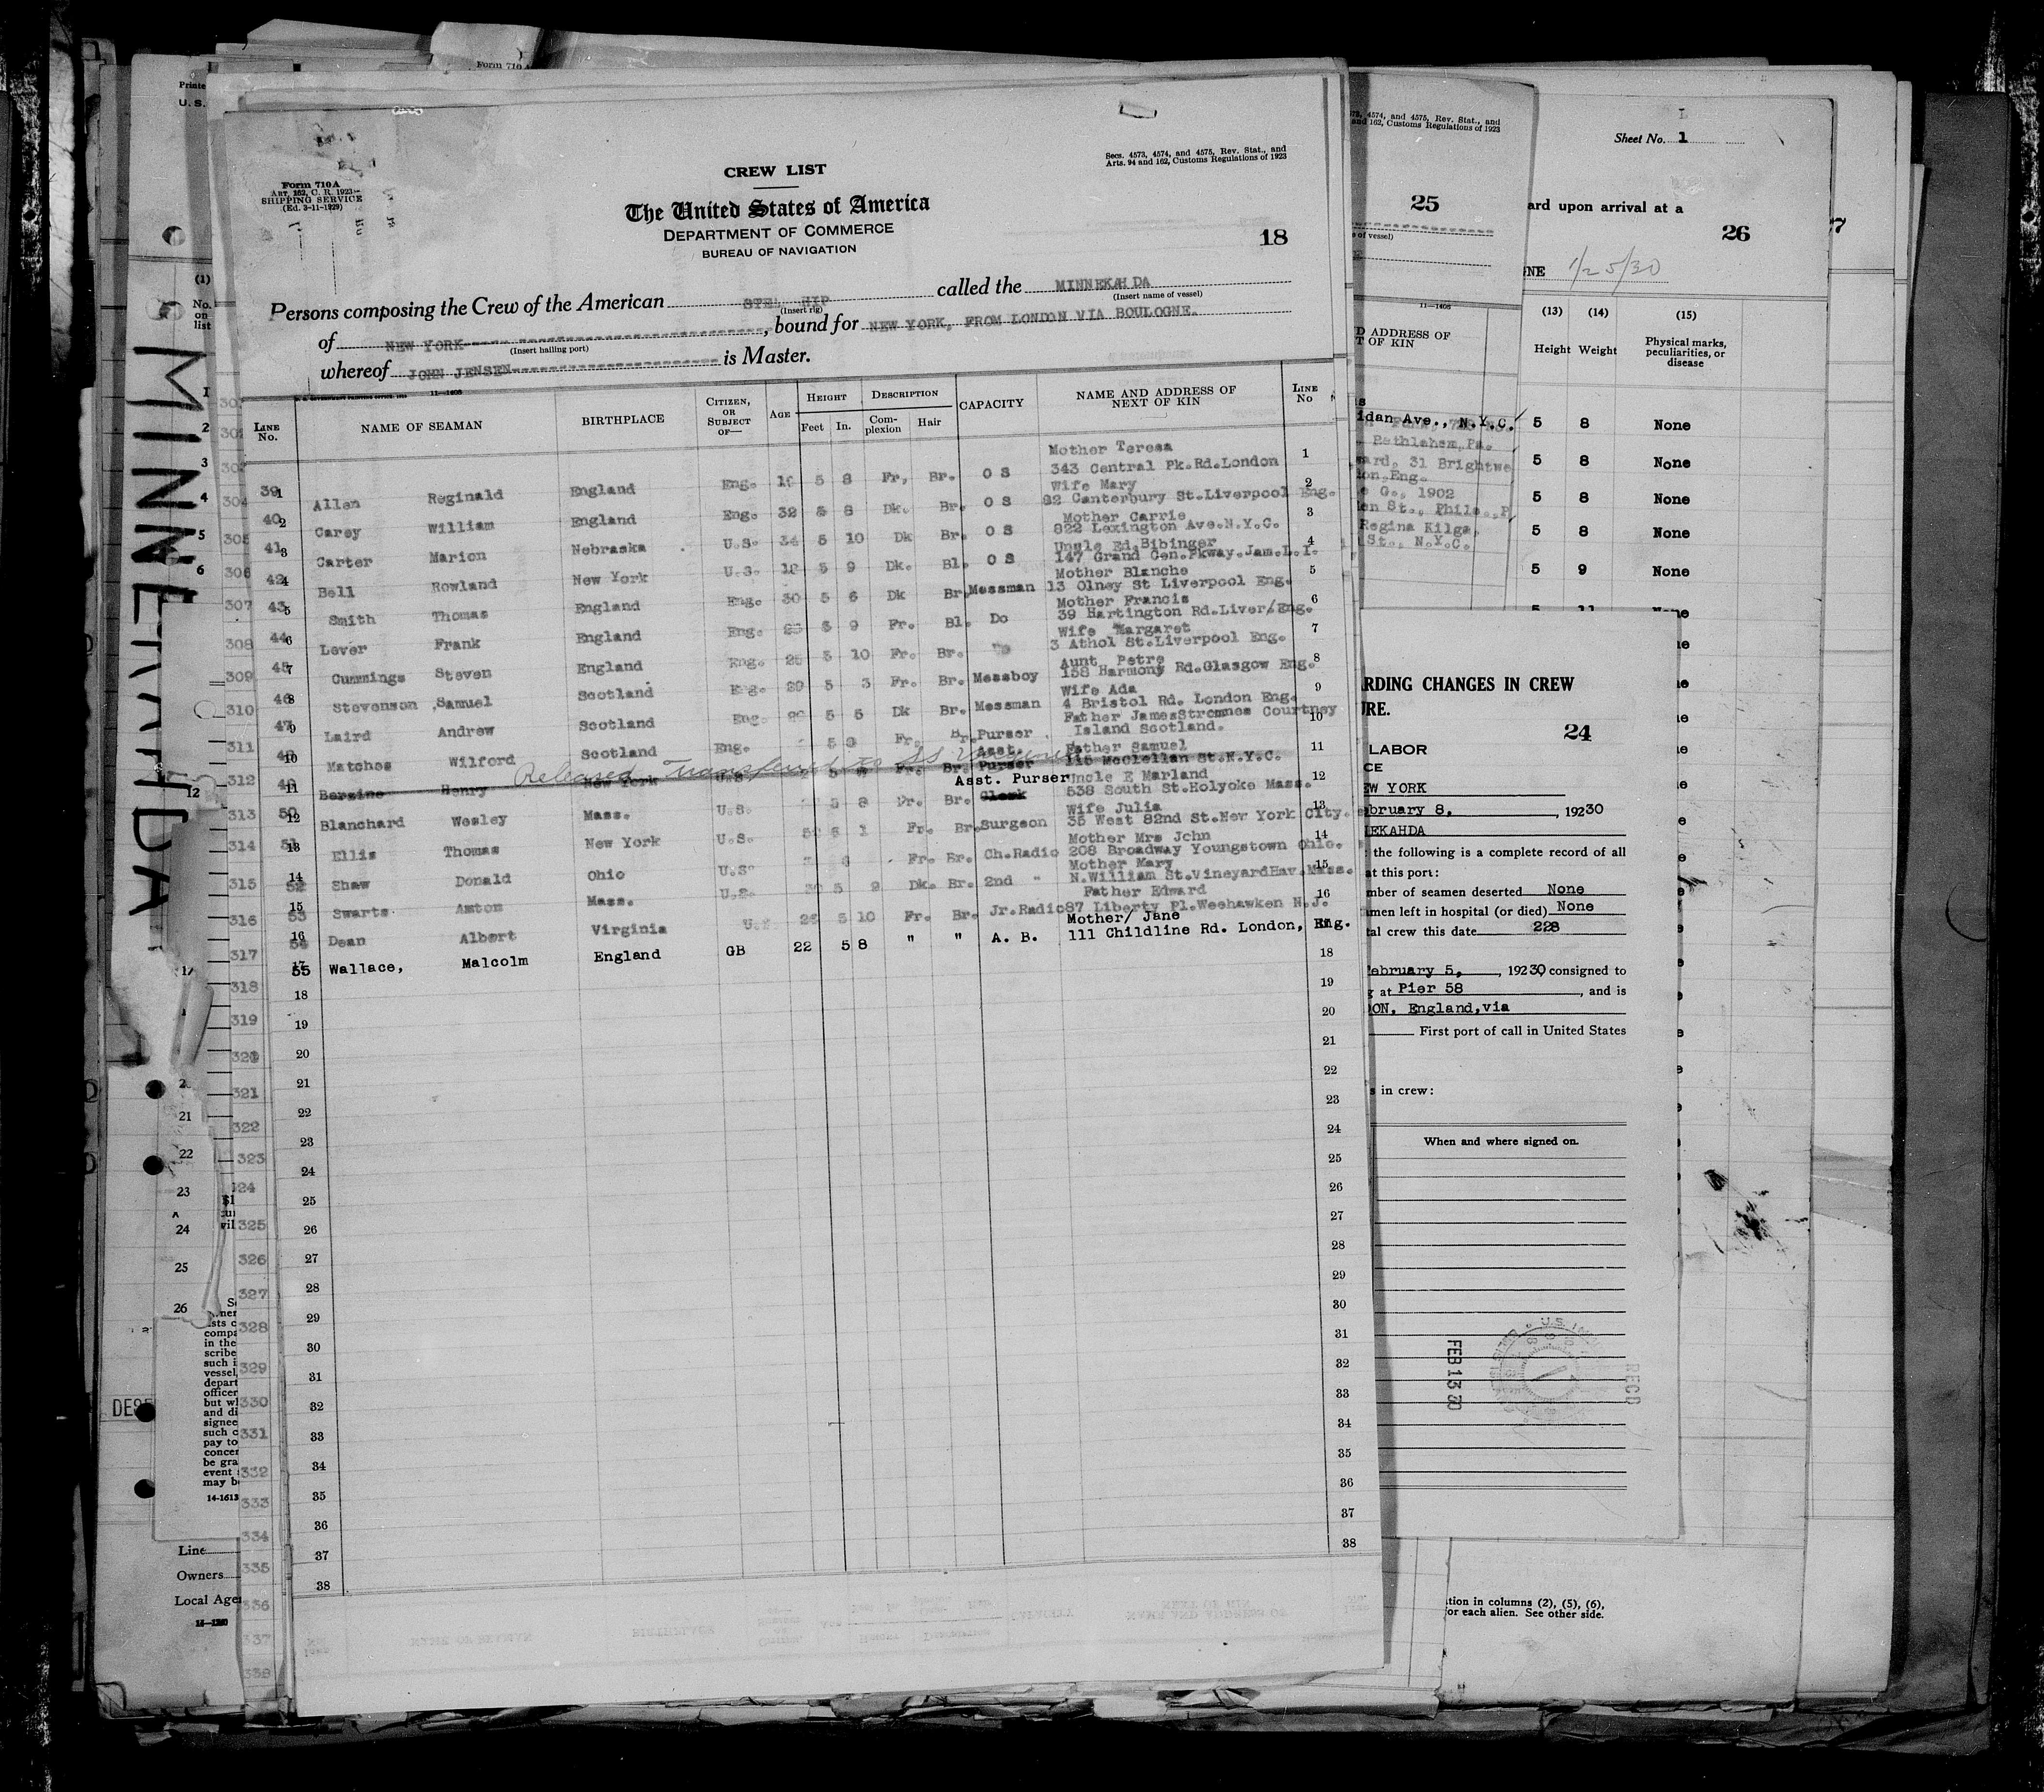 Form 710A
ART. 162, C. R. 1923—
SHIPPING SERVICE
(Ed. 3-11-1929)
CREW LIST
Secs. 4573, 4574, and 4575, Rev. Stat., and
Arts. 94 and 162, Customs Regulations of 1923
The United States of America
DEPARTMENT OF COMMERCE
BUREAU OF NAVIGATION
18
Persons composing the Crew of the American called the MINNEKAHDA
(Insert rig) (Insert name of vessel)
of NEW YORK, bound for NEW YORK, FROM LONDON VIA BOULOGNE.
(Insert hailing port)
whereof JOHN JENSEN is Master.
11—1408
LINE No. NAME OF SEAMAN BIRTHPLACE CITIZEN, OR SUBJECT OF— AGE HEIGHT Feet In. DESCRIPTION Complexion Hair CAPACITY NAME AND ADDRESS OF NEXT OF KIN LINE No
Mother Teresa
39 1 Allen Reginald England Eng. 5 8 Fr, Br. O S 343 Central Pk.Rd.London 1
Wife Mary
40 2 Carey William England Eng. 32 5 8 Dk. Br. O S 82 Canterbury St.Liverpool Eng. 2
Mother Carrie
41 3 Carter Marion Nebraska U.S. 34 5 10 Dk Br. O S 822 Lexington Ave.N.Y.C. 3
Uncle Ed.Bibinger
42 4 Bell Rowland New York U.S. 5 9 Dk. Bl. O S 147 Grand Cen.Pkway.Jam.L.I. 4
Mother Blanche
43 5 Smith Thomas England Eng. 30 5 6 Dk Br. Messman 13 Olney St Liverpool Eng. 5
Mother Francis
44 6 Lever Frank England Eng. 5 9 Fr. Bl. Do 39 Hartington Rd.Liver/Eng. 6
Wife Margaret
45 7 Cummings Steven England Eng. 5 10 Fr. Br. 3 Athol St.Liverpool Eng. 7
Aunt Petre
46 8 Stevenson Samuel Scotland Eng. 5 3 Fr. Br. Messboy 158 Harmony Rd.Glasgow Eng. 8
Wife Ada
47 9 Laird Andrew Scotland Eng. 5 5 Dk Br. Messman 4 Bristol Rd. London Eng. 9
Father James Stromnes Courtney
10 Matches Wilford Scotland Eng. 5 Fr. Br. Purser Island Scotland. 10
Released Transferred to SS
Asst. Father Samuel
11 Henry New York U.S. Fr. Br. Purser 115 McClellan St.N.Y.C. 11
Asst. Purser Uncle E Marland
50 12 Blanchard Wesley Mass. U.S. 5 8 Fr. Br. Clerk 538 South St.Holyoke Mass. 12
Wife Julia
51 13 Ellis Thomas New York U.S. 6 1 Fr. Br. Surgeon 35 West 82nd St.New York City. 13
Mother Mrs John
52 14 Shaw Donald Ohio U.S. Fr. Br. Ch.Radio 208 Broadway Youngstown Ohio. 14
Mother Mary
53 15 Swarts Antom Mass. U.S. 5 9 Dk. Br. 2nd " N.William St.VineyardHav.Mass. 15
Father Edward
54 16 Dean Albert Virginia 5 10 Fr. Br. Jr.Radio 87 Liberty Pl.Weehawken N.J. 16
Mother/ Jane
55 17 Wallace, Malcolm England GB 22 5 8 " " A. B. 111 Childline Rd. London, Eng. 17
18 18
19 19
20 20
21 21
22 22
23 23
24 24
25 25
26 26
27 27
28 28
29 29
30 30
31 31
32 32
33 33
34 34
35 35
36 36
37 37
38 38
MINNEKAHDA
(1)
No.
on
list
25
11—1408
D ADDRESS OF
T OF KIN
idan Ave., N.Y.C.
Bethlehem, Pa.
ard, 31 Brightwe
G., 1902
en St., Phila., P
Regina Kilga,
St., N.Y.C.
Sheet No. 1
ard upon arrival at a
26
1/25/30
(13) (14) (15)
Height Weight Physical marks, peculiarities, or disease
5 8 None
5 8 None
5 8 None
5 8 None
5 9 None
RDING CHANGES IN CREW
24
LABOR
EW YORK
ebruary 8, , 1930
EKAHDA
the following is a complete record of all
at this port:
mber of seamen deserted None
men left in hospital (or died) None
tal crew this date 228
ebruary 5, , 1930 consigned to
at Pier 58 , and is
ON, England, via
First port of call in United States
s in crew:
When and where signed on.
FEB 13 30
RECD
tion in columns (2), (5), (6),
or each alien. See other side.
Line
Owners
Local Age